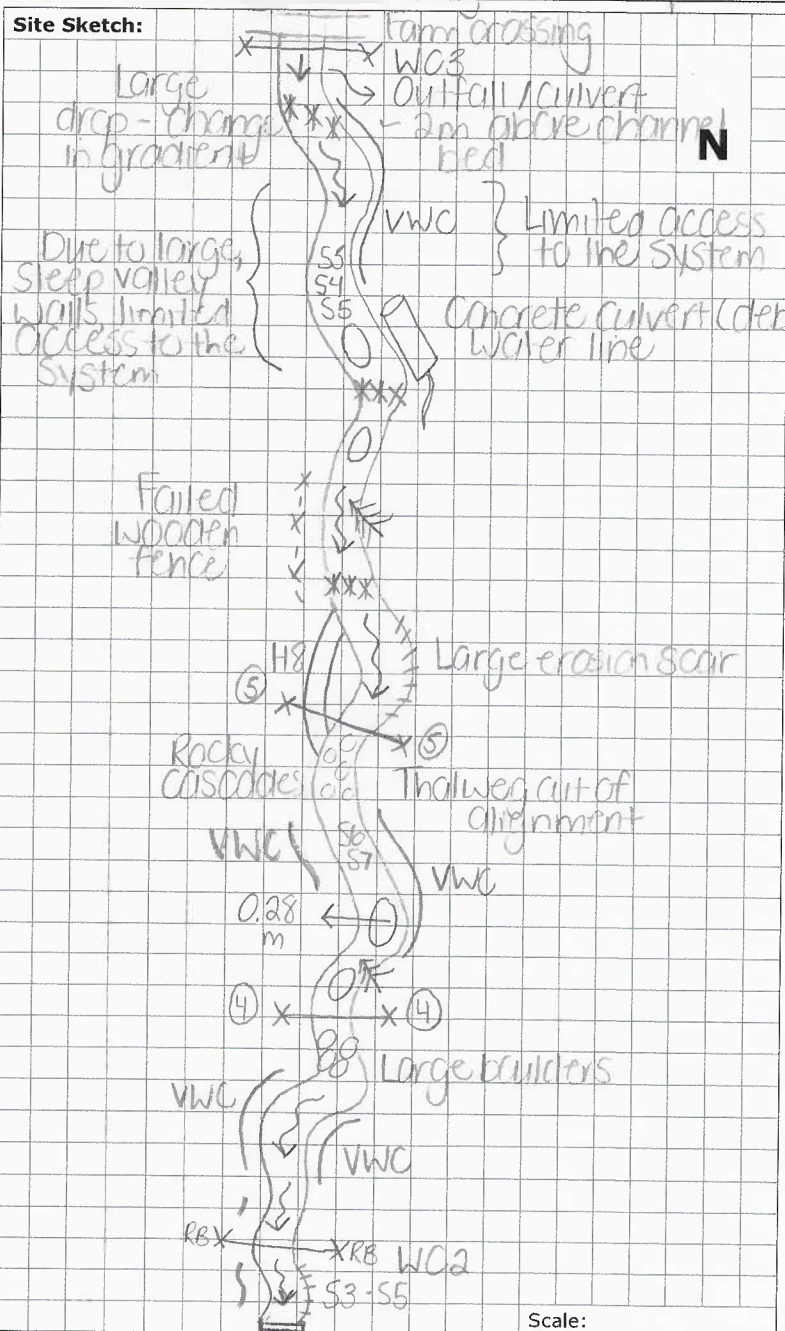 Site Sketch:
Farm crossing
WC3
Large
drop - change
in gradient
Outfall / culvert
- 2m above channel
bed
N
VWC
Limited access
to the system
Due to large,
steep valley
walls limited
access to the
system
S5
S4
S5
Concrete culvert
water line
Failed
wooden
fence
H8
Large erosion scar
5
5
Rocky
cascades
Thalweg out of
alignment
VWC
S6
S7
VWC
0.28
m
4
4
Large boulders
VWC
VWC
RB
RB
WC2
S3-S5
Scale: